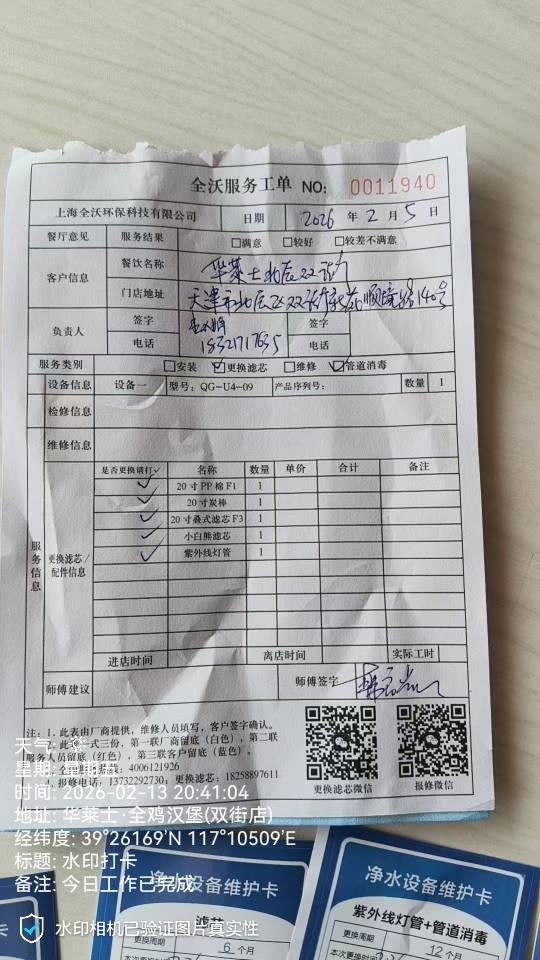 全沃服务工单 NO: 0011940
上海全沃环保科技有限公司 日期 2026 年 2 月 5 日
餐厅意见 服务结果 □满意 □较好 □较差不满意
客户信息 餐饮名称 华莱士北辰双街
门店地址 天津市北辰区双街 顺境路140号
负责人 签字 签字
电话 18321717635 电话
服务类别 □安装 ☑更换滤芯 □维修 ☑管道消毒
设备信息 设备一 型号: QG-U4-09 产品序列号: 数量 1
检修信息
维修信息
服务信息
更换滤芯/配件信息
是否更换请打✓ 名称 数量 单价 合计 备注
✓ 20寸PP棉F1 1
✓ 20寸炭棒 1
✓ 20寸叠式滤芯F3 1
✓ 小白熊滤芯 1
✓ 紫外线灯管 1
进店时间 离店时间 实际工时
师傅建议 师傅签字
注: 1. 此表由厂商提供, 维修人员填写, 客户签字确认。
2. 此表一式三份, 第一联厂商留底(白色), 第二联
服务人员留底(红色), 第三联客户留底(蓝色)。
4006121926
4. 报修电话: 13732292730, 更换滤芯: 18258897611
更换滤芯微信 报修微信
天气:
星期:
时间: 2026-02-13 20:41:04
地址: 华莱士·全鸡汉堡(双街店)
经纬度: 39°26169'N 117°10509'E
标题: 水印打卡
备注: 今日工作已完成
水印相机已验证图片真实性
净水设备维护卡
滤芯
更换周期 6 个月
净水设备维护卡
紫外线灯管+管道消毒
更换周期 12 个月
本次更换